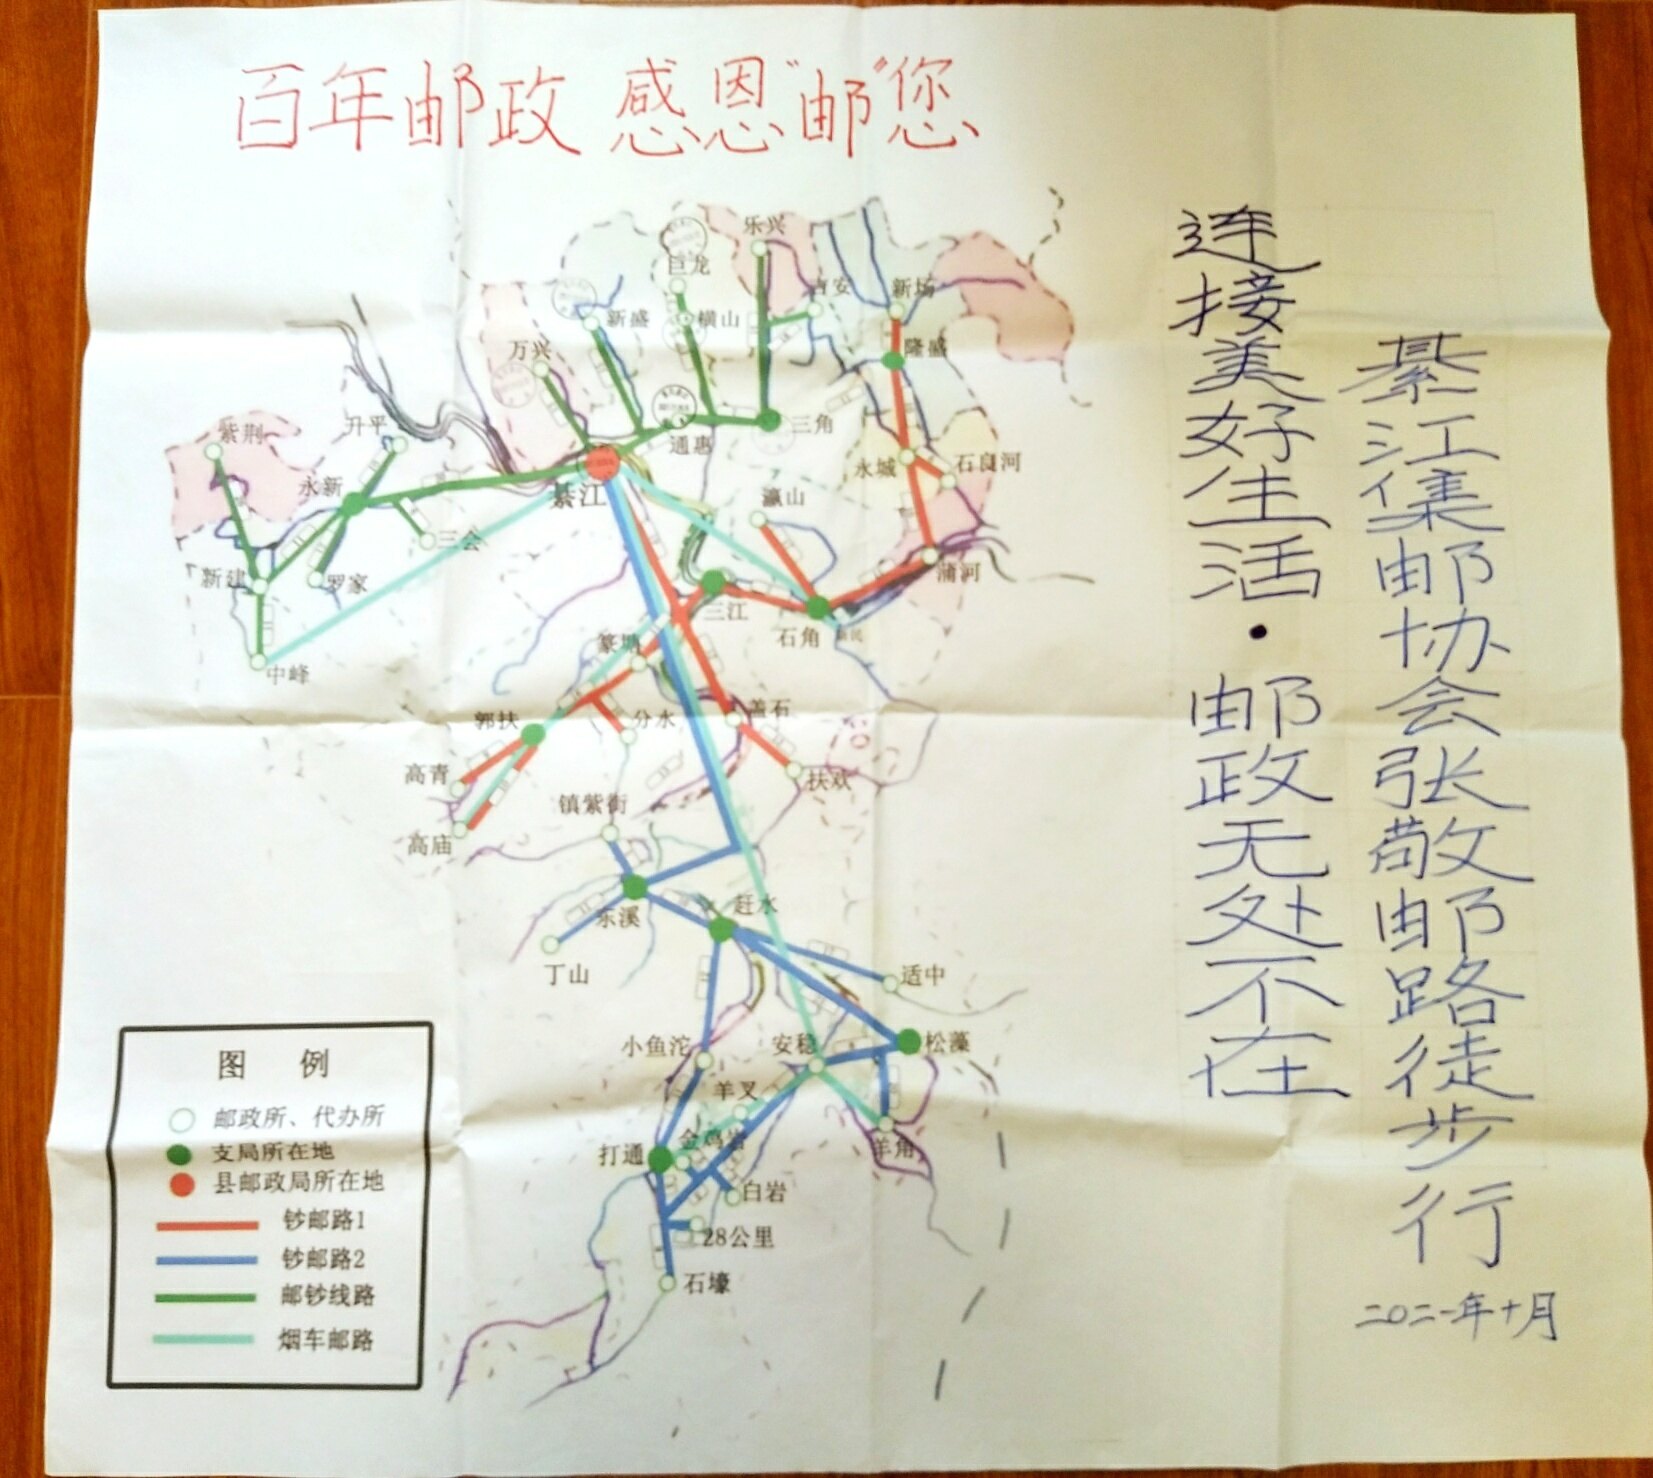 百年邮政 感恩“邮”您
连接美好生活·邮政无处不在
綦江集邮协会张敬邮路徒步行
二〇二一年十月
乐兴
巨龙
吉安
新场
新盛
横山
隆盛
万兴
三角
通惠
升平
紫荆
永城
石良河
永新
綦江
瀛山
三会
新建
罗家
蒲河
三江
石角
篆塘
中峰
郭扶
分水
盖石
高青
扶欢
镇紫街
高庙
东溪
赶水
丁山
适中
小鱼沱
安稳
松藻
羊叉
金鸡岩
打通
羊角
白岩
28公里
石壕
图 例
邮政所、代办所
支局所在地
县邮政局所在地
钞邮路1
钞邮路2
邮钞线路
烟车邮路